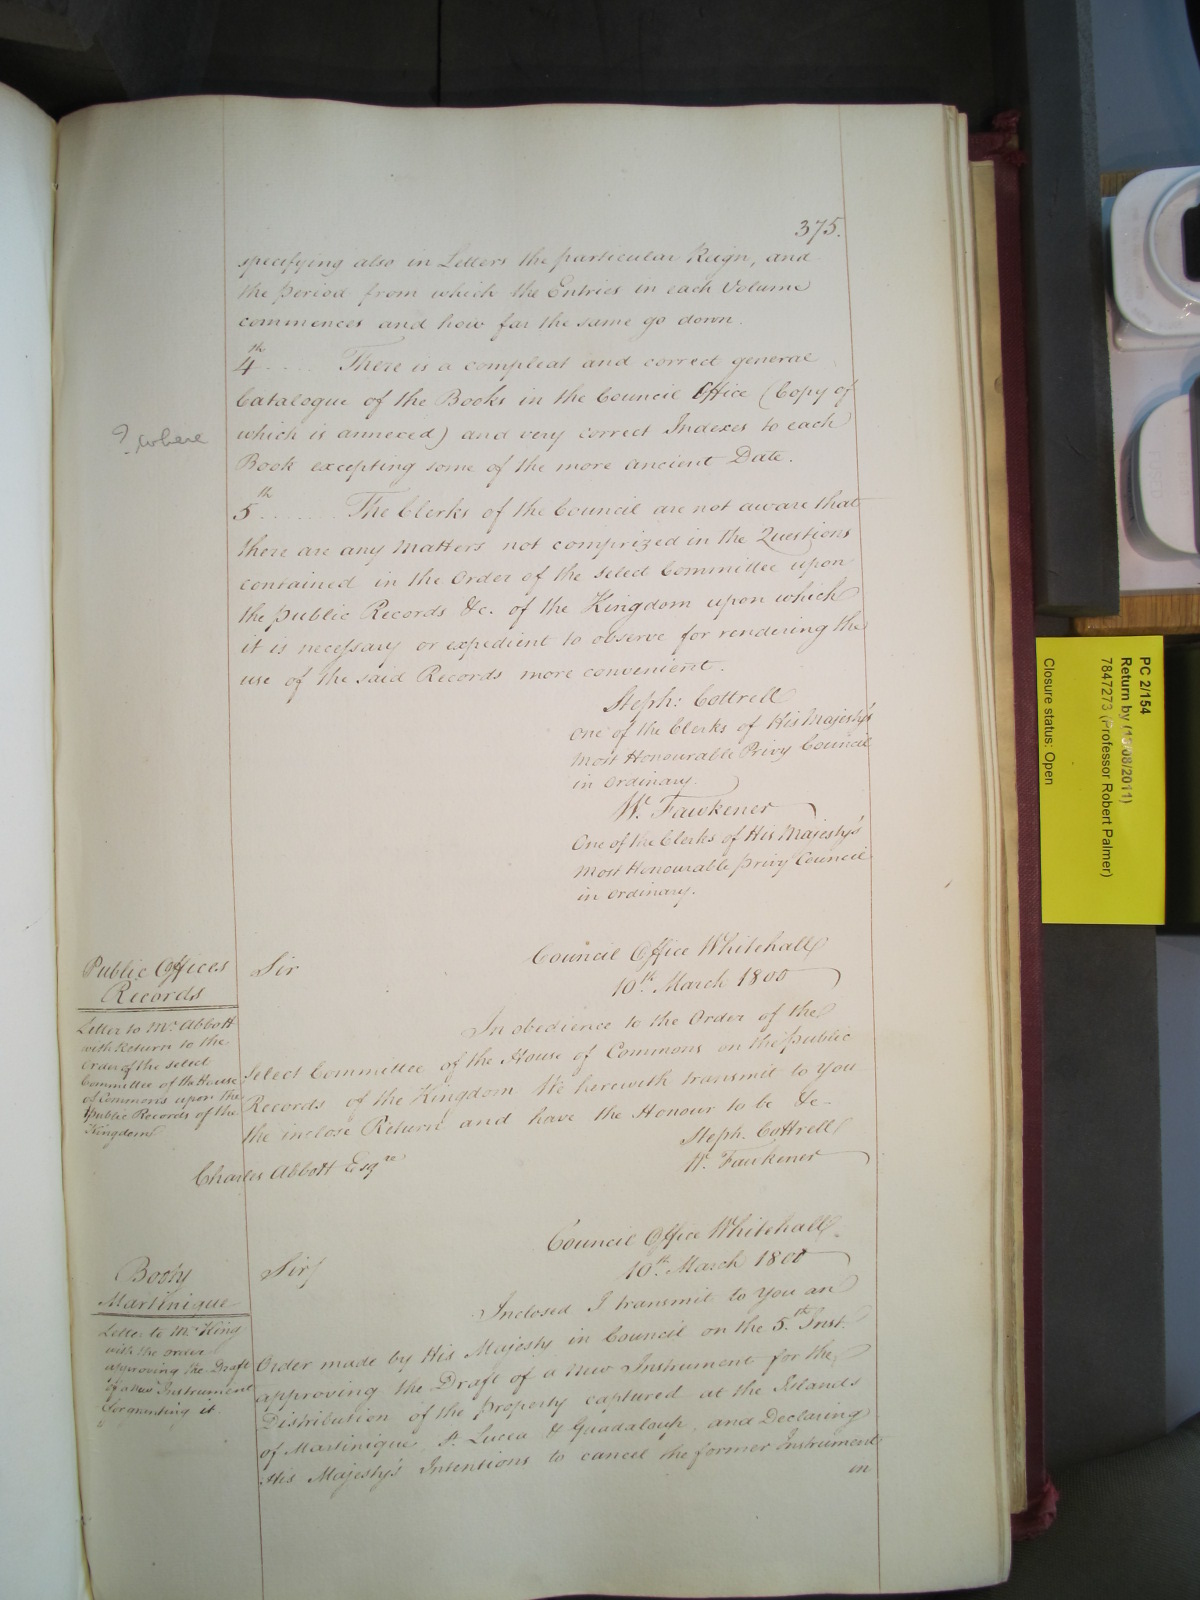 375.
specifying also in Letters the particular Reign, and
the period from which the Entries in each Volume
commences and how far the same go down.
4th .... There is a compleat and correct general
Catalogue of the Books in the Council Office (Copy of
? where
which is annexed) and very correct Indexes to each
Book excepting some of the more ancient Date.
5th ....... The Clerks of the Council are not aware that
there are any Matters not comprized in the Questions
contained in the Order of the select Committee upon
the public Records &c. of the Kingdom upon which
it is necessary or expedient to observe for rendering the
use of the said Records more convenient.
Steph: Cottrell
One of the Clerks of His Majesty's
Most Honourable Privy Council
in Ordinary.
W. Fawkener
One of the Clerks of His Majesty's
Most Honourable privy Council
in Ordinary.
Public Offices
Records
Letter to Mr. Abbott
with Return to the
Order of the select
Committee of the House
of Commons upon the
Public Records of the
Kingdom
Council Office Whitehall
10th. March 1800
Sir
In obedience to the Order of the
Select Committee of the House of Commons on the public
Records of the Kingdom We herewith transmit to You
the inclose Return and have the Honour to be &c-
Steph. Cottrell
W. Fawkener
Charles Abbott Esqre
Council Office Whitehall.
10th. March 1800
Booty
Martinique
Letter to Mr. King
with the order
approving the Draft
of a new Instrument
for granting it.
Sir/
Inclosed I transmit to You an
Order made by His Majesty in Council on the 5th. Inst.
approving the Draft of a new Instrument for the
Distribution of the property captured at the Islands
of Martinique, St. Lucea & Guadaloup, and Declaring
His Majesty's Intentions to cancel the former Instrument
in
PC 2/154
Return by (15/08/2011)
7847273 (Professor Robert Palmer)
Closure status: Open